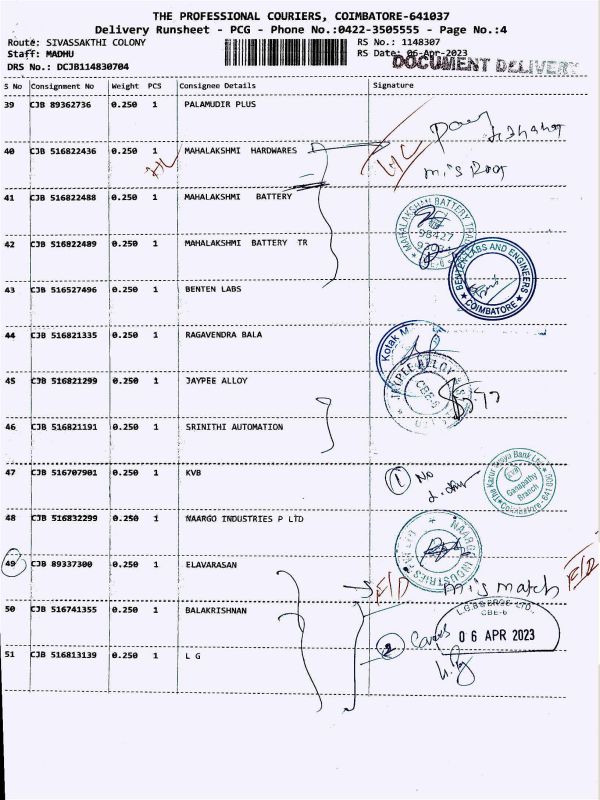 THE PROFESSIONAL COURIERS, COIMBATORE-641037
Delivery Runsheet - PCG - Phone No.:0422-3505555 - Page No.:4
Route: SIVASSAKTHI COLONY RS No.: 1148307
Staff: MADHU RS Date: 06-Apr-2023
DRS No.: DCJB114830704 DOCUMENT DELIVERY
S No Consignment No Weight PCS Consignee Details Signature
39 CJB 89362736 0.250 1 PALAMUDIR PLUS
40 CJB 516822436 0.250 1 MAHALAKSHMI HARDWARES
mis Root
41 CJB 516822488 0.250 1 MAHALAKSHMI BATTERY
MAHALAKSHMI BATTERY TRA
98427
42 CJB 516822489 0.250 1 MAHALAKSHMI BATTERY TR
BENTEN LABS AND ENGINEERS
COIMBATORE
43 CJB 516527496 0.250 1 BENTEN LABS
44 CJB 516821335 0.250 1 RAGAVENDRA BALA
Kotak M
45 CJB 516821299 0.250 1 JAYPEE ALLOY
JAYPEE ALLOY
CBE-6
46 CJB 516821191 0.250 1 SRINITHI AUTOMATION
47 CJB 516707901 0.250 1 KVB
1 No
The Karur Vysya Bank Ltd
Ganapathy
Branch
Coimbatore 641 006
48 CJB 516832299 0.250 1 NAARGO INDUSTRIES P LTD
NAARGO INDUSTRIES
49 CJB 89337300 0.250 1 ELAVARASAN
E/D mis match E/D
50 CJB 516741355 0.250 1 BALAKRISHNAN
L.G.B & BROS. LTD.,
CBE-6
06 APR 2023
2
51 CJB 516813139 0.250 1 L G